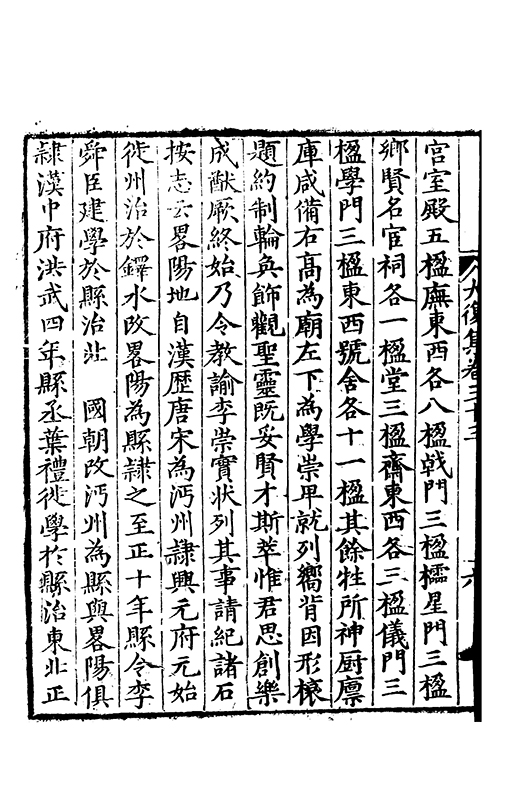 宫室殿五楹廡東西各八楹㦸門三楹櫺星門三楹
鄉賢名宦祠各一楹堂三楹齋東西各三楹儀門三
楹學門三楹東西號舍各十一楹其餘牲所神厨廪
庫咸備右高為廟左下為學崇卑就列嚮背因形榱
題約制輪奐飾觀聖靈既妥賢才斯萃惟君思創樂
成猷厥終始乃令教諭李崇實狀列其事請紀諸石
按志云畧陽地自漢歷唐宋為沔州隷興元府元始
徙州治於鐸水改畧陽為縣隷之至正十年縣令李
舜臣建學於縣治北　國朝改沔州為縣與畧陽俱
隷漢中府洪武四年縣丞葉禮徙學於縣治東北正
大復集卷五十三